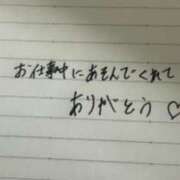 お仕事中にあそんでくれて
ありがとう♡